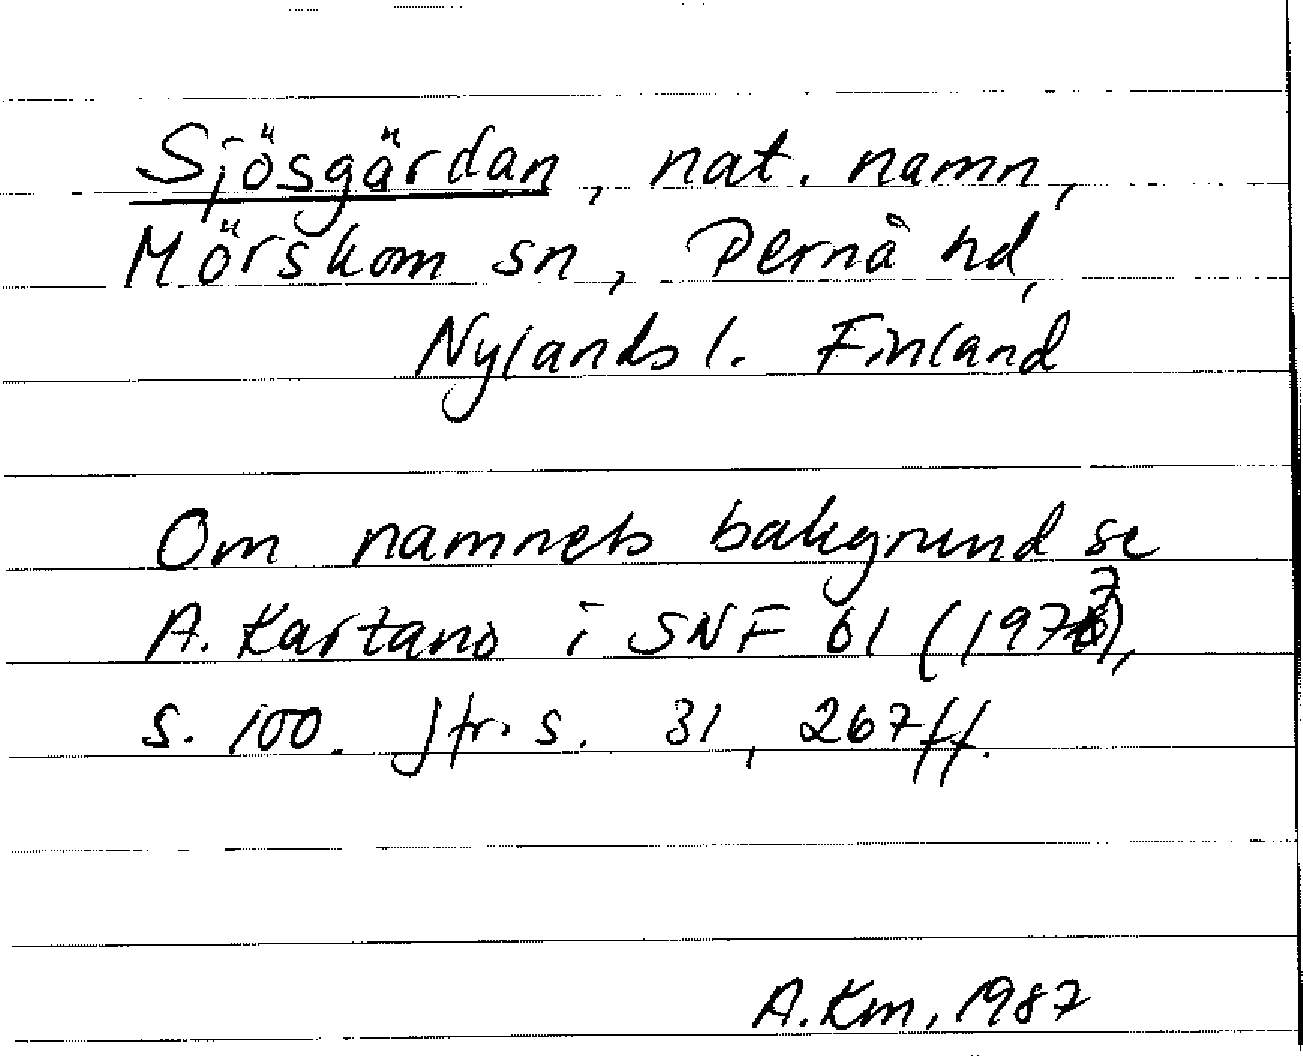 Sjösgärdan, nat. namn,
Mörskom sn, Pernå hd,
Nylands l. Finland
Om namnets bakgrund se
A. Kartano i SNF 61 (1977),
s. 100. Jfr. s. 31, 267ff.
A. Km, 1987